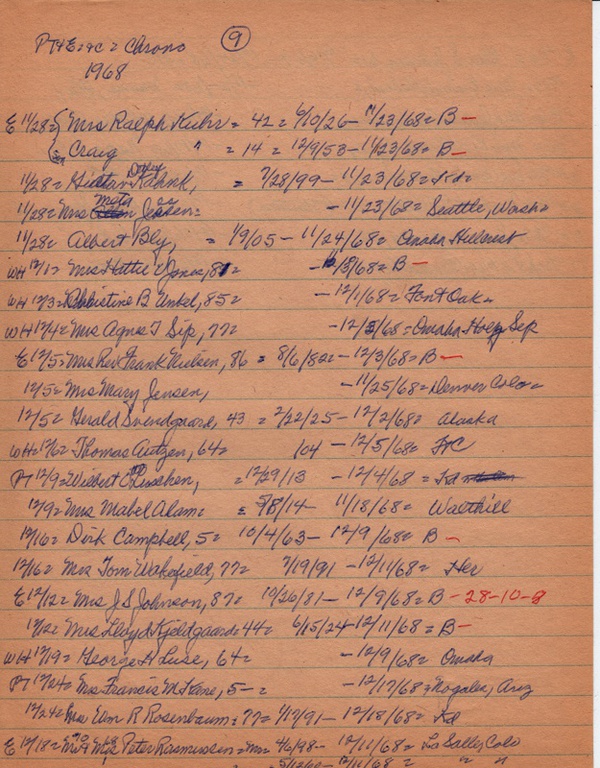 PT+E+c = Chrono ⑨
1968
E 11/28 = { Mrs Ralph Kuhr = 42 = 6/10/26 - 11/23/68 = B -
Craig " = 14 = 12/9/53 - 11/23/68 = B -
11/28 = Gustav Kahnk, = 7/28/99 - 11/23/68 =
11/28 = Mrs Meta Jessen = - 11/23/68 = Seattle, Wash =
11/28 = Albert Bly, = 1/9/05 - 11/24/68 = Omaha Hillcrest
WH 12/1 = Mrs Hattie V Jones, 81 = /68 = B -
WH 12/3 = Christine B Unkel, 85 = - 12/1/68 = Font Oak =
WH 12/4 = Mrs Agnes T Sip, 77 = - 12/3/68 = Omaha Holy Sep
E 12/5 = Mrs Rev Frank Nielsen, 86 = 8/6/82 = - 12/3/68 = B -
12/5 = Mrs Mary Jensen, - 11/25/68 = Denver Colo =
12/5 = Gerald Svendgaard, 43 = 2/22/25 - 12/2/68 = Alaska
WH = 12/6 = Thomas Autzen, 64 = 104 - 12/5/68 = FtC
PT 12/9 = Wilbert C Lueschen, = 12/29/13 - 12/4/68 =
12/9 = Mrs Mabel Alam = = 5/8/14 - 11/18/68 = Walthill
12/16 = Dirk Campbell, 5 = 10/4/63 - 12/9/68 = B -
12/16 = Mrs Tom Wakefield, 77 = 7/19/91 - 12/11/68 = Her
E 12/12 = Mrs J S Johnson, 87 = 10/26/81 - 12/9/68 = B - 28-10-8
12/12 = Mrs Lloyd Kjeldgaard = 44 = 6/15/24 - 12/11/68 = B -
WH 12/19 = George H Luse, 64 = - 12/9/68 = Omaha
PT 12/24 = Mrs Francis M Kane, 5- = - 12/17/68 = Nogales, Ariz
12/24 = Mrs Wm R Rosenbaum = 77 = 1/17/91 - 12/18/68 =
E 12/18 = Mr + Mrs Peter Rasmussen = Mr = 4/6/98 - 12/11/68 = La Salle, Colo
- 12/11/68 = " "